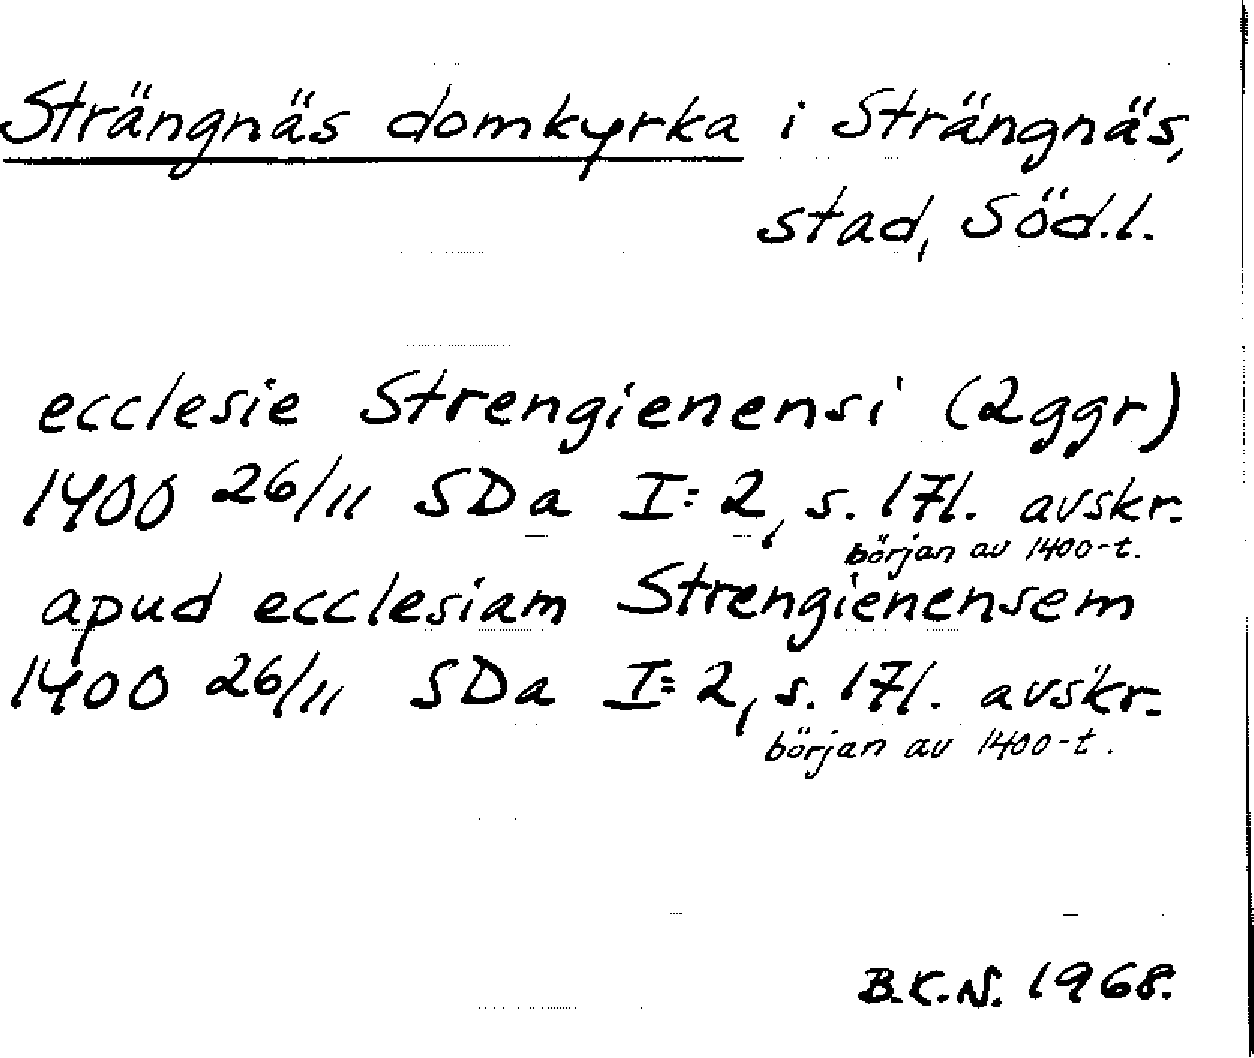 Strängnäs domkyrka i Strängnäs,
stad, Söd.l.
ecclesie Strengienensi (2ggr)
1400 26/11 SDa I:2, s. 171. avskr.
början av 1400-t.
apud ecclesiam Strengienensem
1400 26/11 SDa I:2, s. 171. avskr.
början av 1400-t.
B.K.N. 1968.